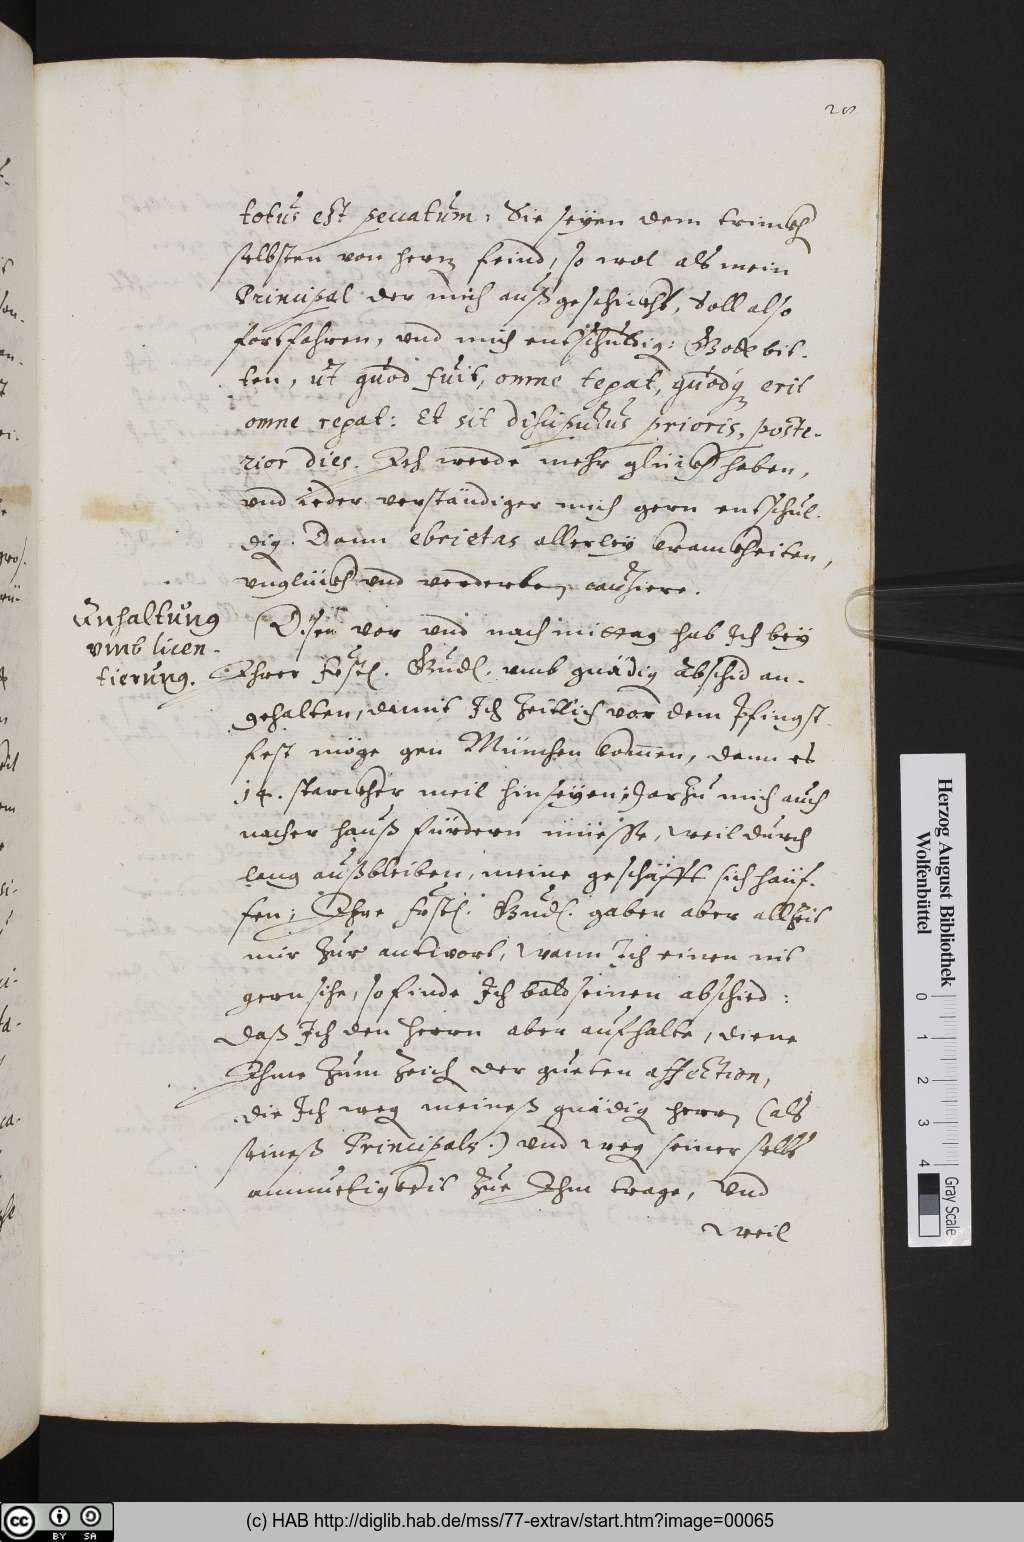 28
totus est peccatum: Sie seyen dem trincken
selbsten von hertzen feind, so wol als mein
Principal der mich außgeschickht, Soll also
fortfahren, und mich entschuldigen: Gott bit-
ten, ut quod fuit, omne tegat, quodq erit
omne regat: Et sit discipulus prioris, poste-
rior dies. Ich werde mehr glückh haben,
und ieder verständiger mich gern entschul-
digen. Dann ebrietas allerley kranckheiten,
unglückh und verderben causiere.
Anhaltung
vmb licen-
tierung.
Disen vor und nach mittag hab Ich bey
Ihrer Fürstl. Gnd. umb gnädigen abschid an-
gehalten, damit Ich zeitlich vor dem Pfingst
fest möge gen München kommen, dann es
14. starckher meil hin seyen: Darzu mich auch
nacher hauß fürdern müesse, weil durch
lang außbleiben, meine geschäfft sich häuf-
fen; Ihre Fürstl. Gnd. gaben aber allzeit
mir zur antwort, Wann Ich einen nit
gern sihe, so finde Ich bald seinen abschied:
Daß Ich den Herrn aber aufhalte, diene
Ihme zum zeichen der gueten affection,
die Ich wegen meineß gnädigen herrn (als
seineß Principals.) und wegen seiner selbst
anmuetigkeit zue Ihm trage, Und
Weil
Herzog August Bibliothek
Wolfenbüttel
0 1 2 3 4
Gray Scale
cc BY SA
(c) HAB http://diglib.hab.de/mss/77-extrav/start.htm?image=00065